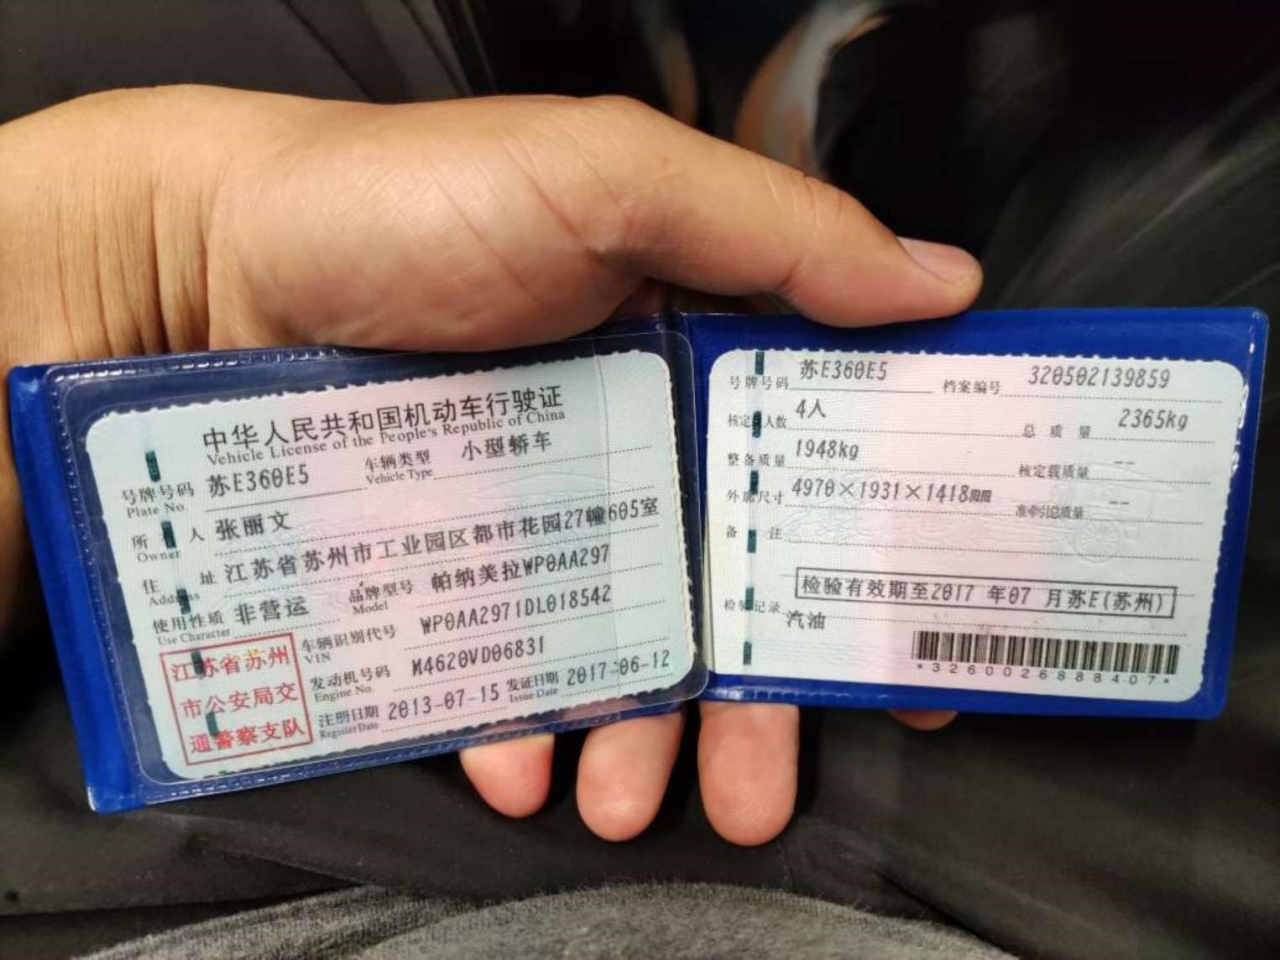 中华人民共和国机动车行驶证
Vehicle License of the People's Republic of China
号牌号码 苏E360E5 车辆类型 小型轿车
Plate No. Vehicle Type
所有人 张丽文
Owner
住址 江苏省苏州市工业园区都市花园27幢605室
Address
使用性质 非营运 品牌型号 帕纳美拉WP0AA297
Use Character Model
江苏省苏州
市公安局交
通警察支队
车辆识别代号 WP0AA2971DL018542
VIN
发动机号码 M4620VD06831
Engine No.
注册日期 2013-07-15 发证日期 2017-06-12
Register Date Issue Date
号牌号码 苏E360E5 档案编号 320502139859
核定人数 4人 总质量 2365kg
整备质量 1948kg 核定载质量 --
外廓尺寸 4970×1931×1418mm 准牵引总质量 --
备注
检验有效期至2017年07月苏E(苏州)
检验记录
汽油
*3260026888407*